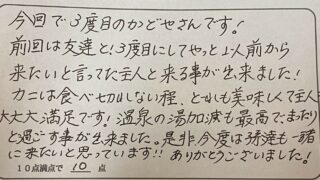 今回で3度目のかどやさんです!
前回は友達と!3度目にしてやっと2人前から
来たいと言ってた主人と来る事が出来ました!
カニは食べ切れない程、どれも美味しくて主人も
大大大満足です!温泉の湯加減も最高でまったり
と過ごす事が出来ました。是非今度は孫達も一緒
に来たいと思っています!!ありがとうございました!
10点満点で 10 点